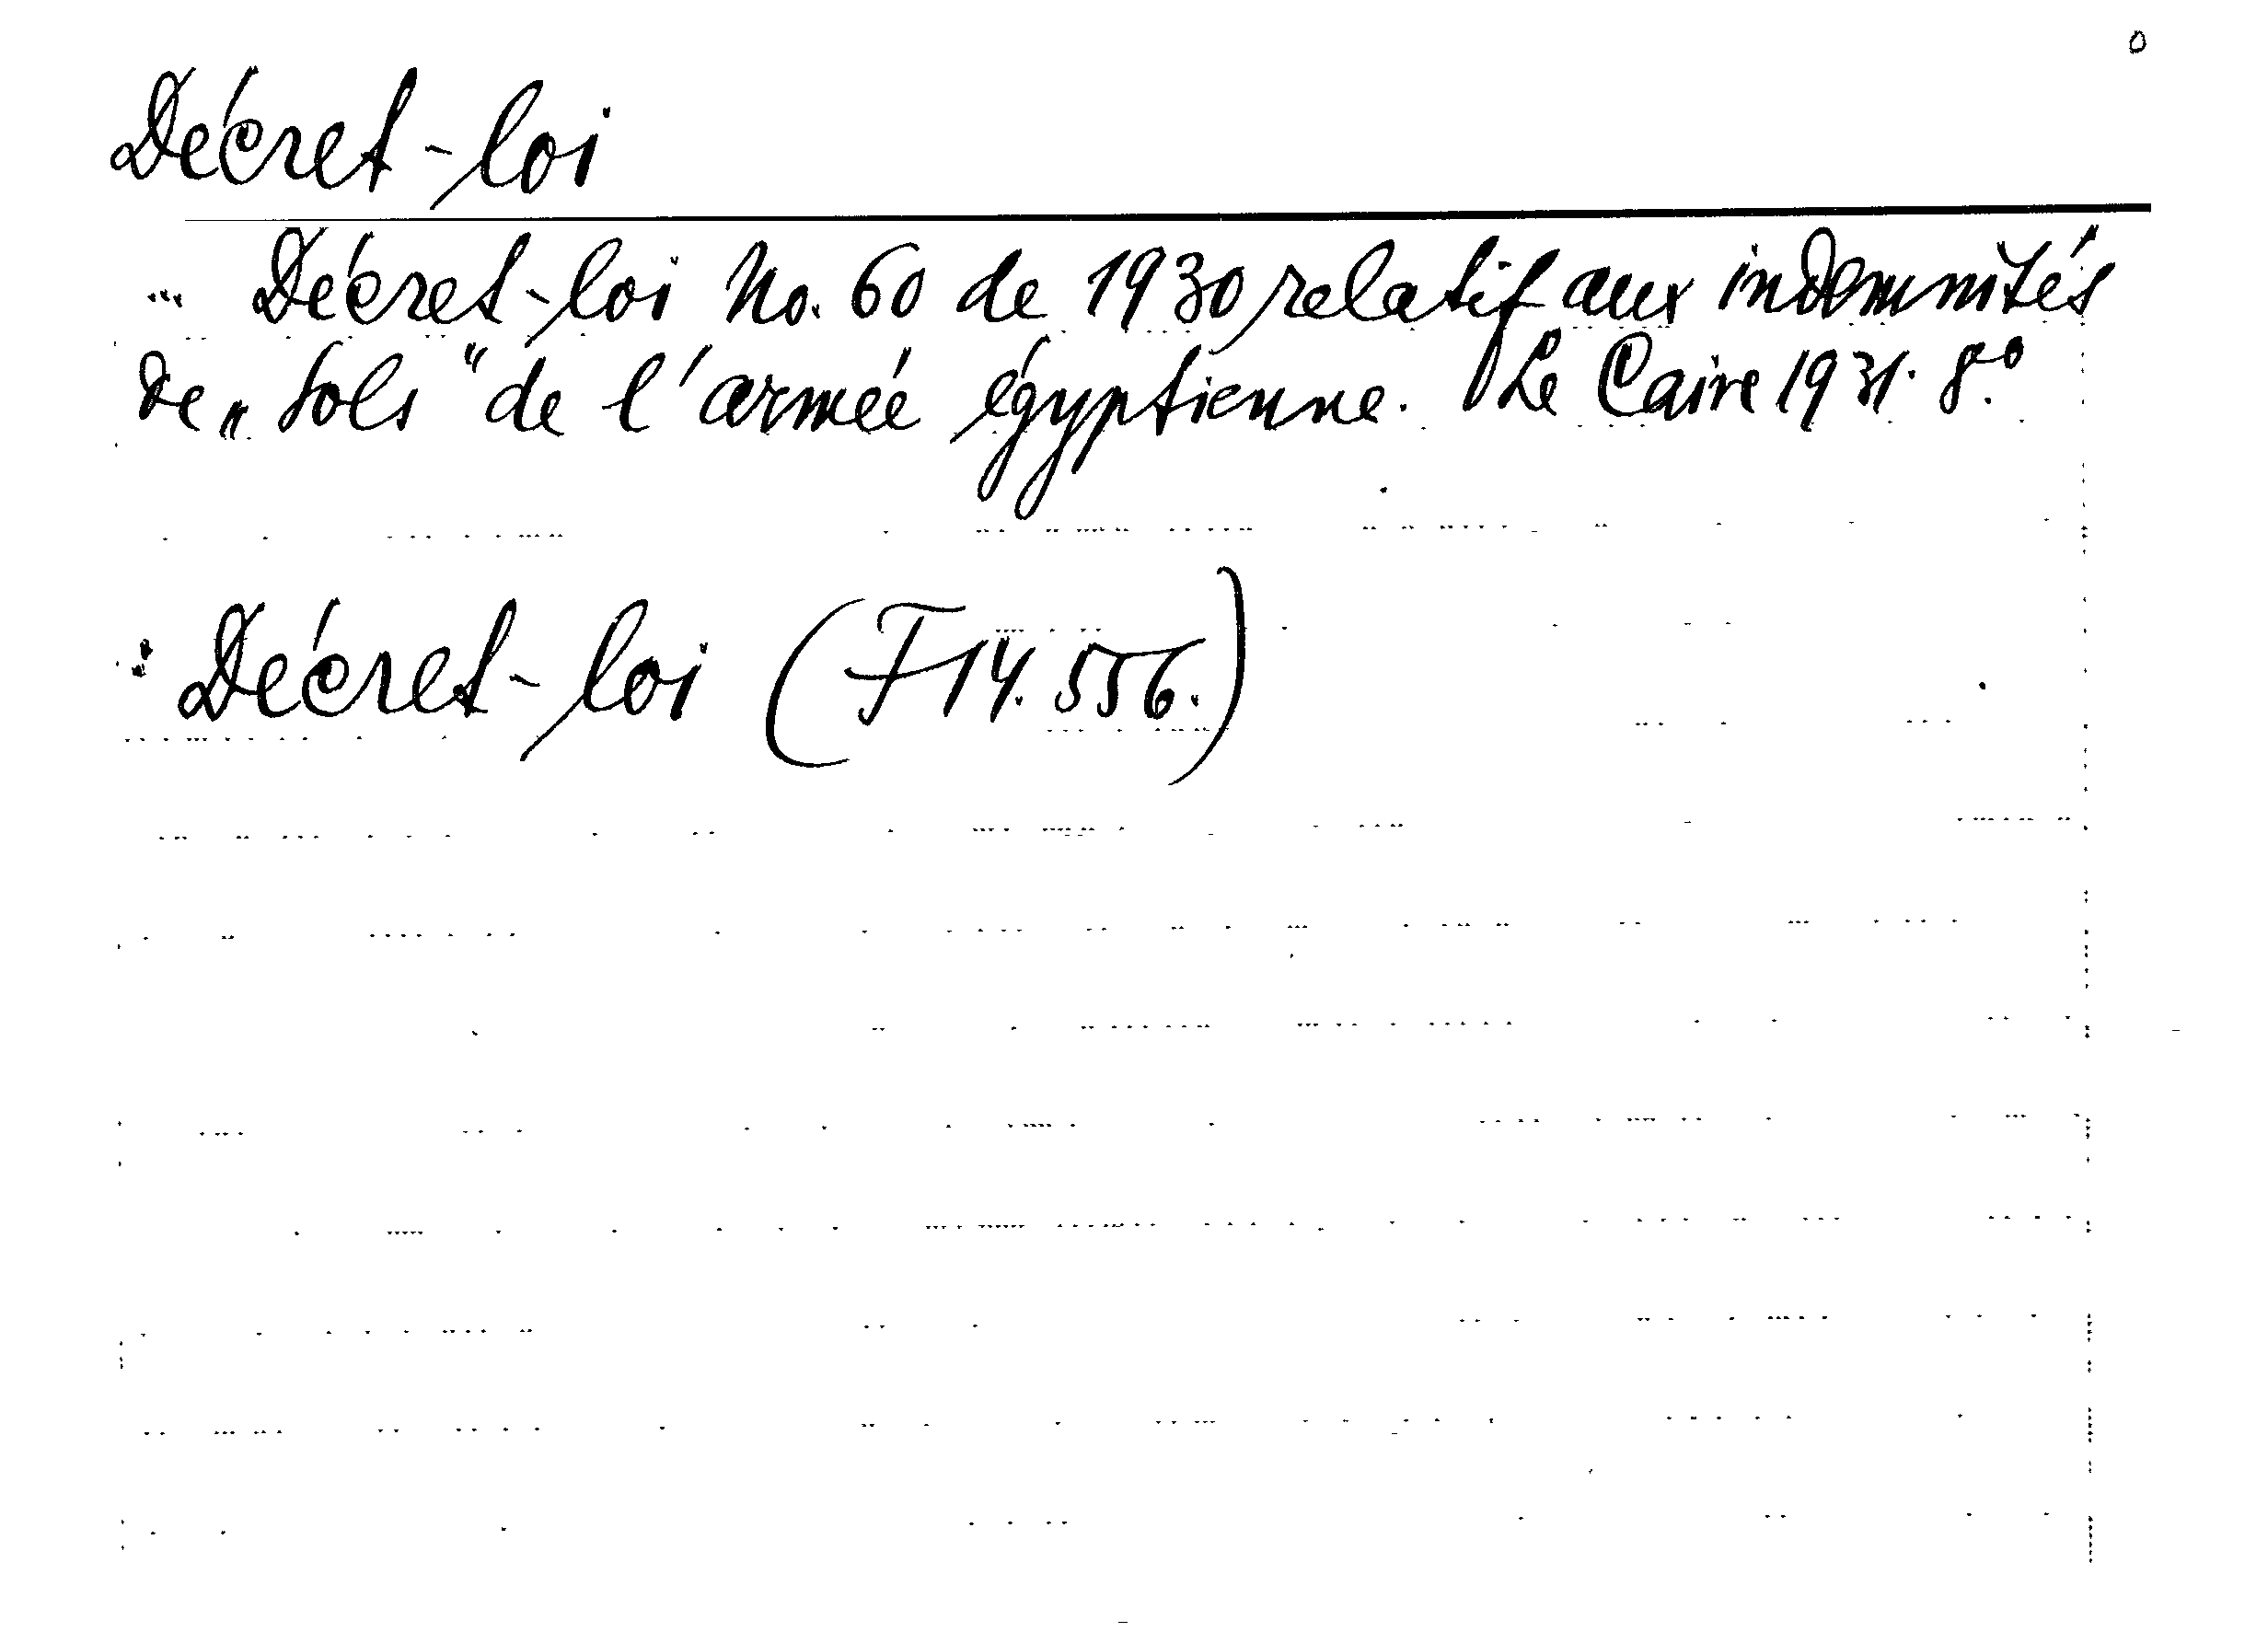 o
Décret-loi
... Décret-loi No. 60 de 1930 relatif aux indemnités
de „sols“ de l'armée égyptienne. Le Caire 1931. 8.º
: Décret-loi (F 14.556.)